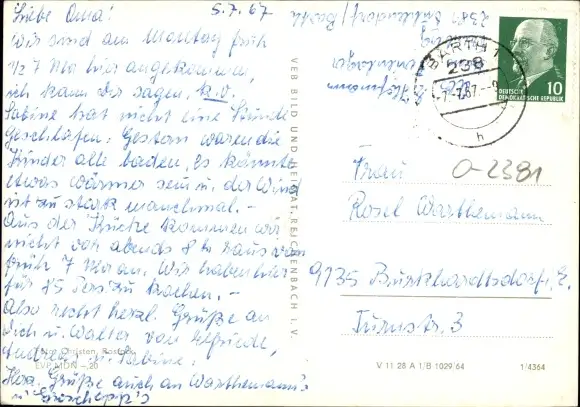 Liebe Oma! 5.7.67
Wir sind am Montag früh
1/2 7 Uhr hier angekommen,
ich kann Dir sagen k.o.
Sabine hat nicht eine Stunde
geschlafen. Gestern waren die
Kinder alle baden, es könnte
etwas wärmer sein u. der Wind
ist zu stark manchmal.-
Aus der Küche kommen wir
nicht vor abends 8 h raus von
früh 7 Uhr an. Wir haben hier
für 85 Pers. zu kochen.-
Also recht herzl. Grüße an
Dich u. Walter von Elfriede,
Andreas u. Sabine.
Herzl. Grüße auch an Warthemann's
u.
Foto: Christen, Rostock
EVP MDN -,20
VEB BILD UND HEIMAT, REICHENBACH I. V.
BARTH 1
238
-7.7.67.-9
h
10
DEUTSCHE
DEMOKRATISCHE REPUBLIK
0-2381
Frau
Rosel Warthemann
9135 Burkhardtsdorf i. E.
Turnstr. 3
V 11 28 A 1/B 1029/64
1/4364